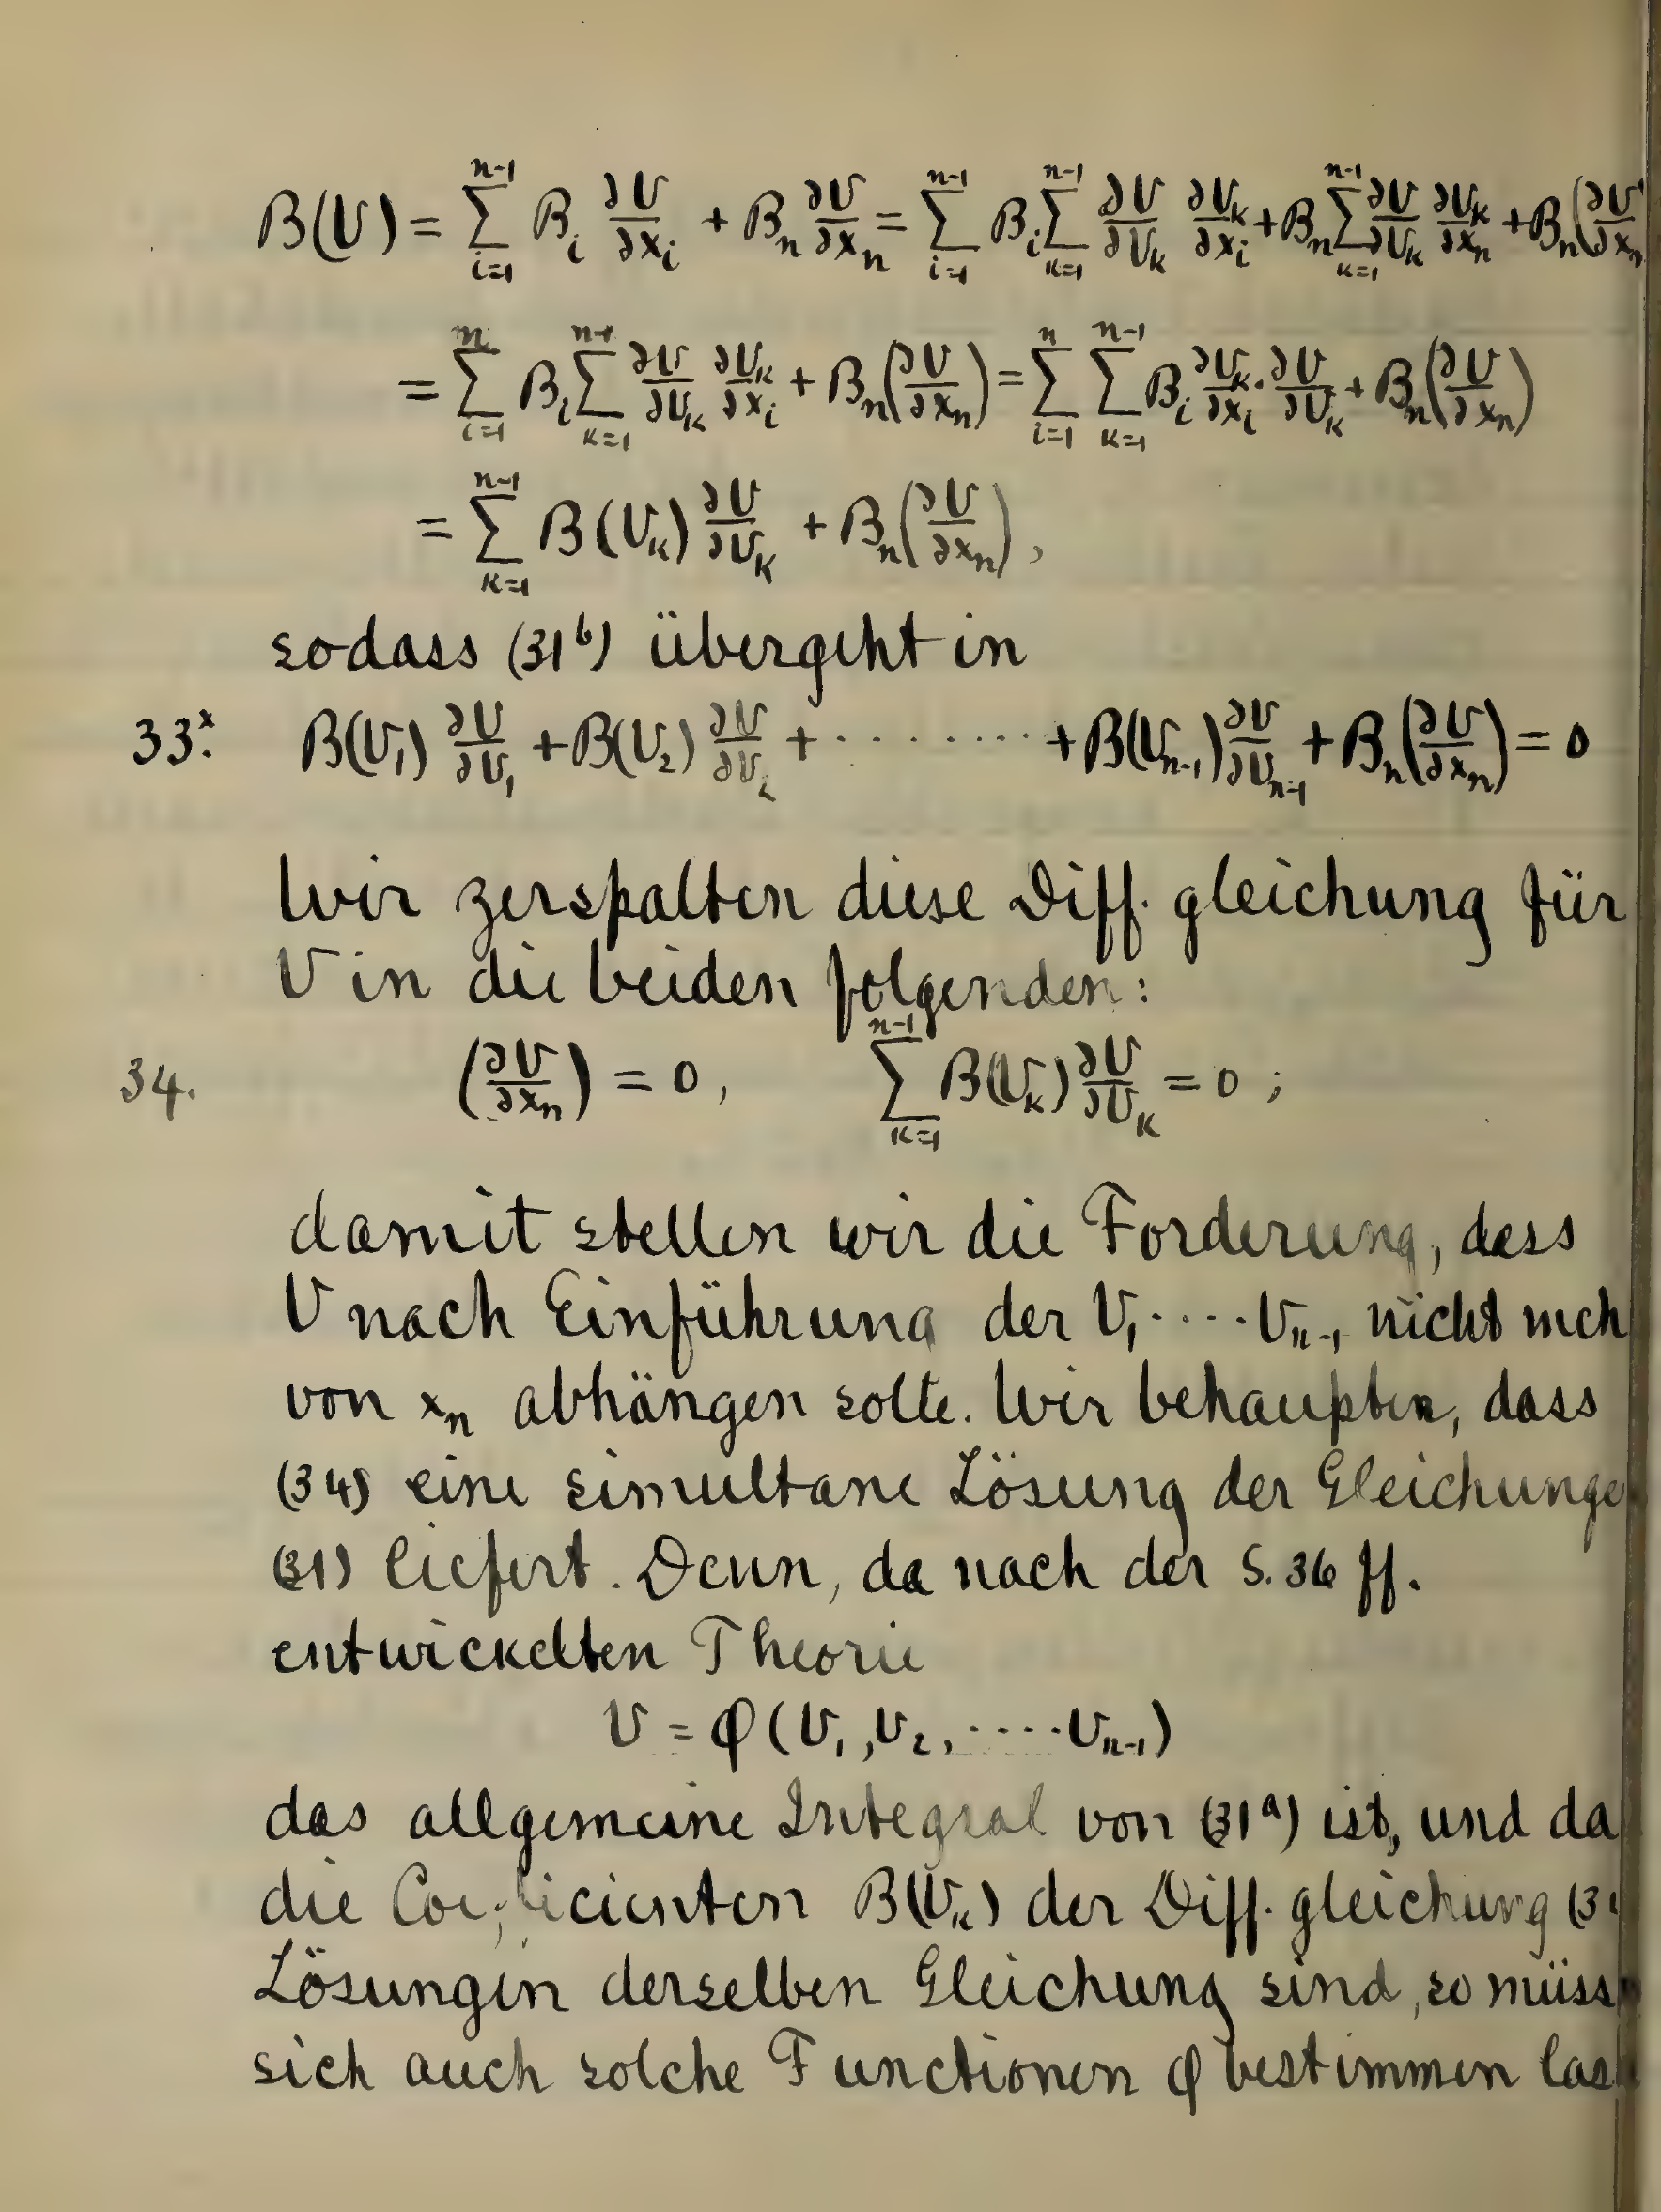 B(U) = \sum_{i=1}^{n-1} B_i \frac{∂U}{∂x_i} + B_n \frac{∂U}{∂x_n} = \sum_{i=1}^{n-1} B_i \sum_{k=1}^{n-1} \frac{∂U}{∂U_k} \frac{∂U_k}{∂x_i} + B_n \sum_{k=1}^{n-1} \frac{∂U}{∂U_k} \frac{∂U_k}{∂x_n} + B_n (\frac{∂U}{∂x_n}
= \sum_{i=1}^{n} B_i \sum_{k=1}^{n-1} \frac{∂U}{∂U_k} \frac{∂U_k}{∂x_i} + B_n (\frac{∂U}{∂x_n}) = \sum_{i=1}^{n} \sum_{k=1}^{n-1} B_i \frac{∂U_k}{∂x_i} · \frac{∂U}{∂U_k} + B_n (\frac{∂U}{∂x_n})
= \sum_{k=1}^{n-1} B(U_k) \frac{∂U}{∂U_k} + B_n (\frac{∂U}{∂x_n}),
sodass (31^b) übergeht in
33^x. B(U_1) \frac{∂U}{∂U_1} + B(U_2) \frac{∂U}{∂U_2} + · · · · · · · · + B(U_{n-1}) \frac{∂U}{∂U_{n-1}} + B_n (\frac{∂U}{∂x_n}) = 0
Wir zerspalten diese Diff. gleichung für
U in die beiden folgenden:
34. (\frac{∂U}{∂x_n}) = 0, \sum_{k=1}^{n-1} B(U_k) \frac{∂U}{∂U_k} = 0 ;
damit stellen wir die Forderung, dass
U nach Einführung der U_1 · · · · U_{n-1} nicht meh
von x_n abhängen solte. Wir behaupten, dass
(34) eine simultane Lösung der Gleichunge
(31) liefert. Denn, da nach der S. 36 ff.
entwickelten Theorie
U = φ(U_1, U_2, · · · · U_{n-1})
das allgemeine Integral von (31^a) ist, und da
die Coefficienten B(U_k) der Diff. gleichung (31
Lösungen derselben Gleichung sind, so müss
sich auch solche Functionen φ bestimmen las